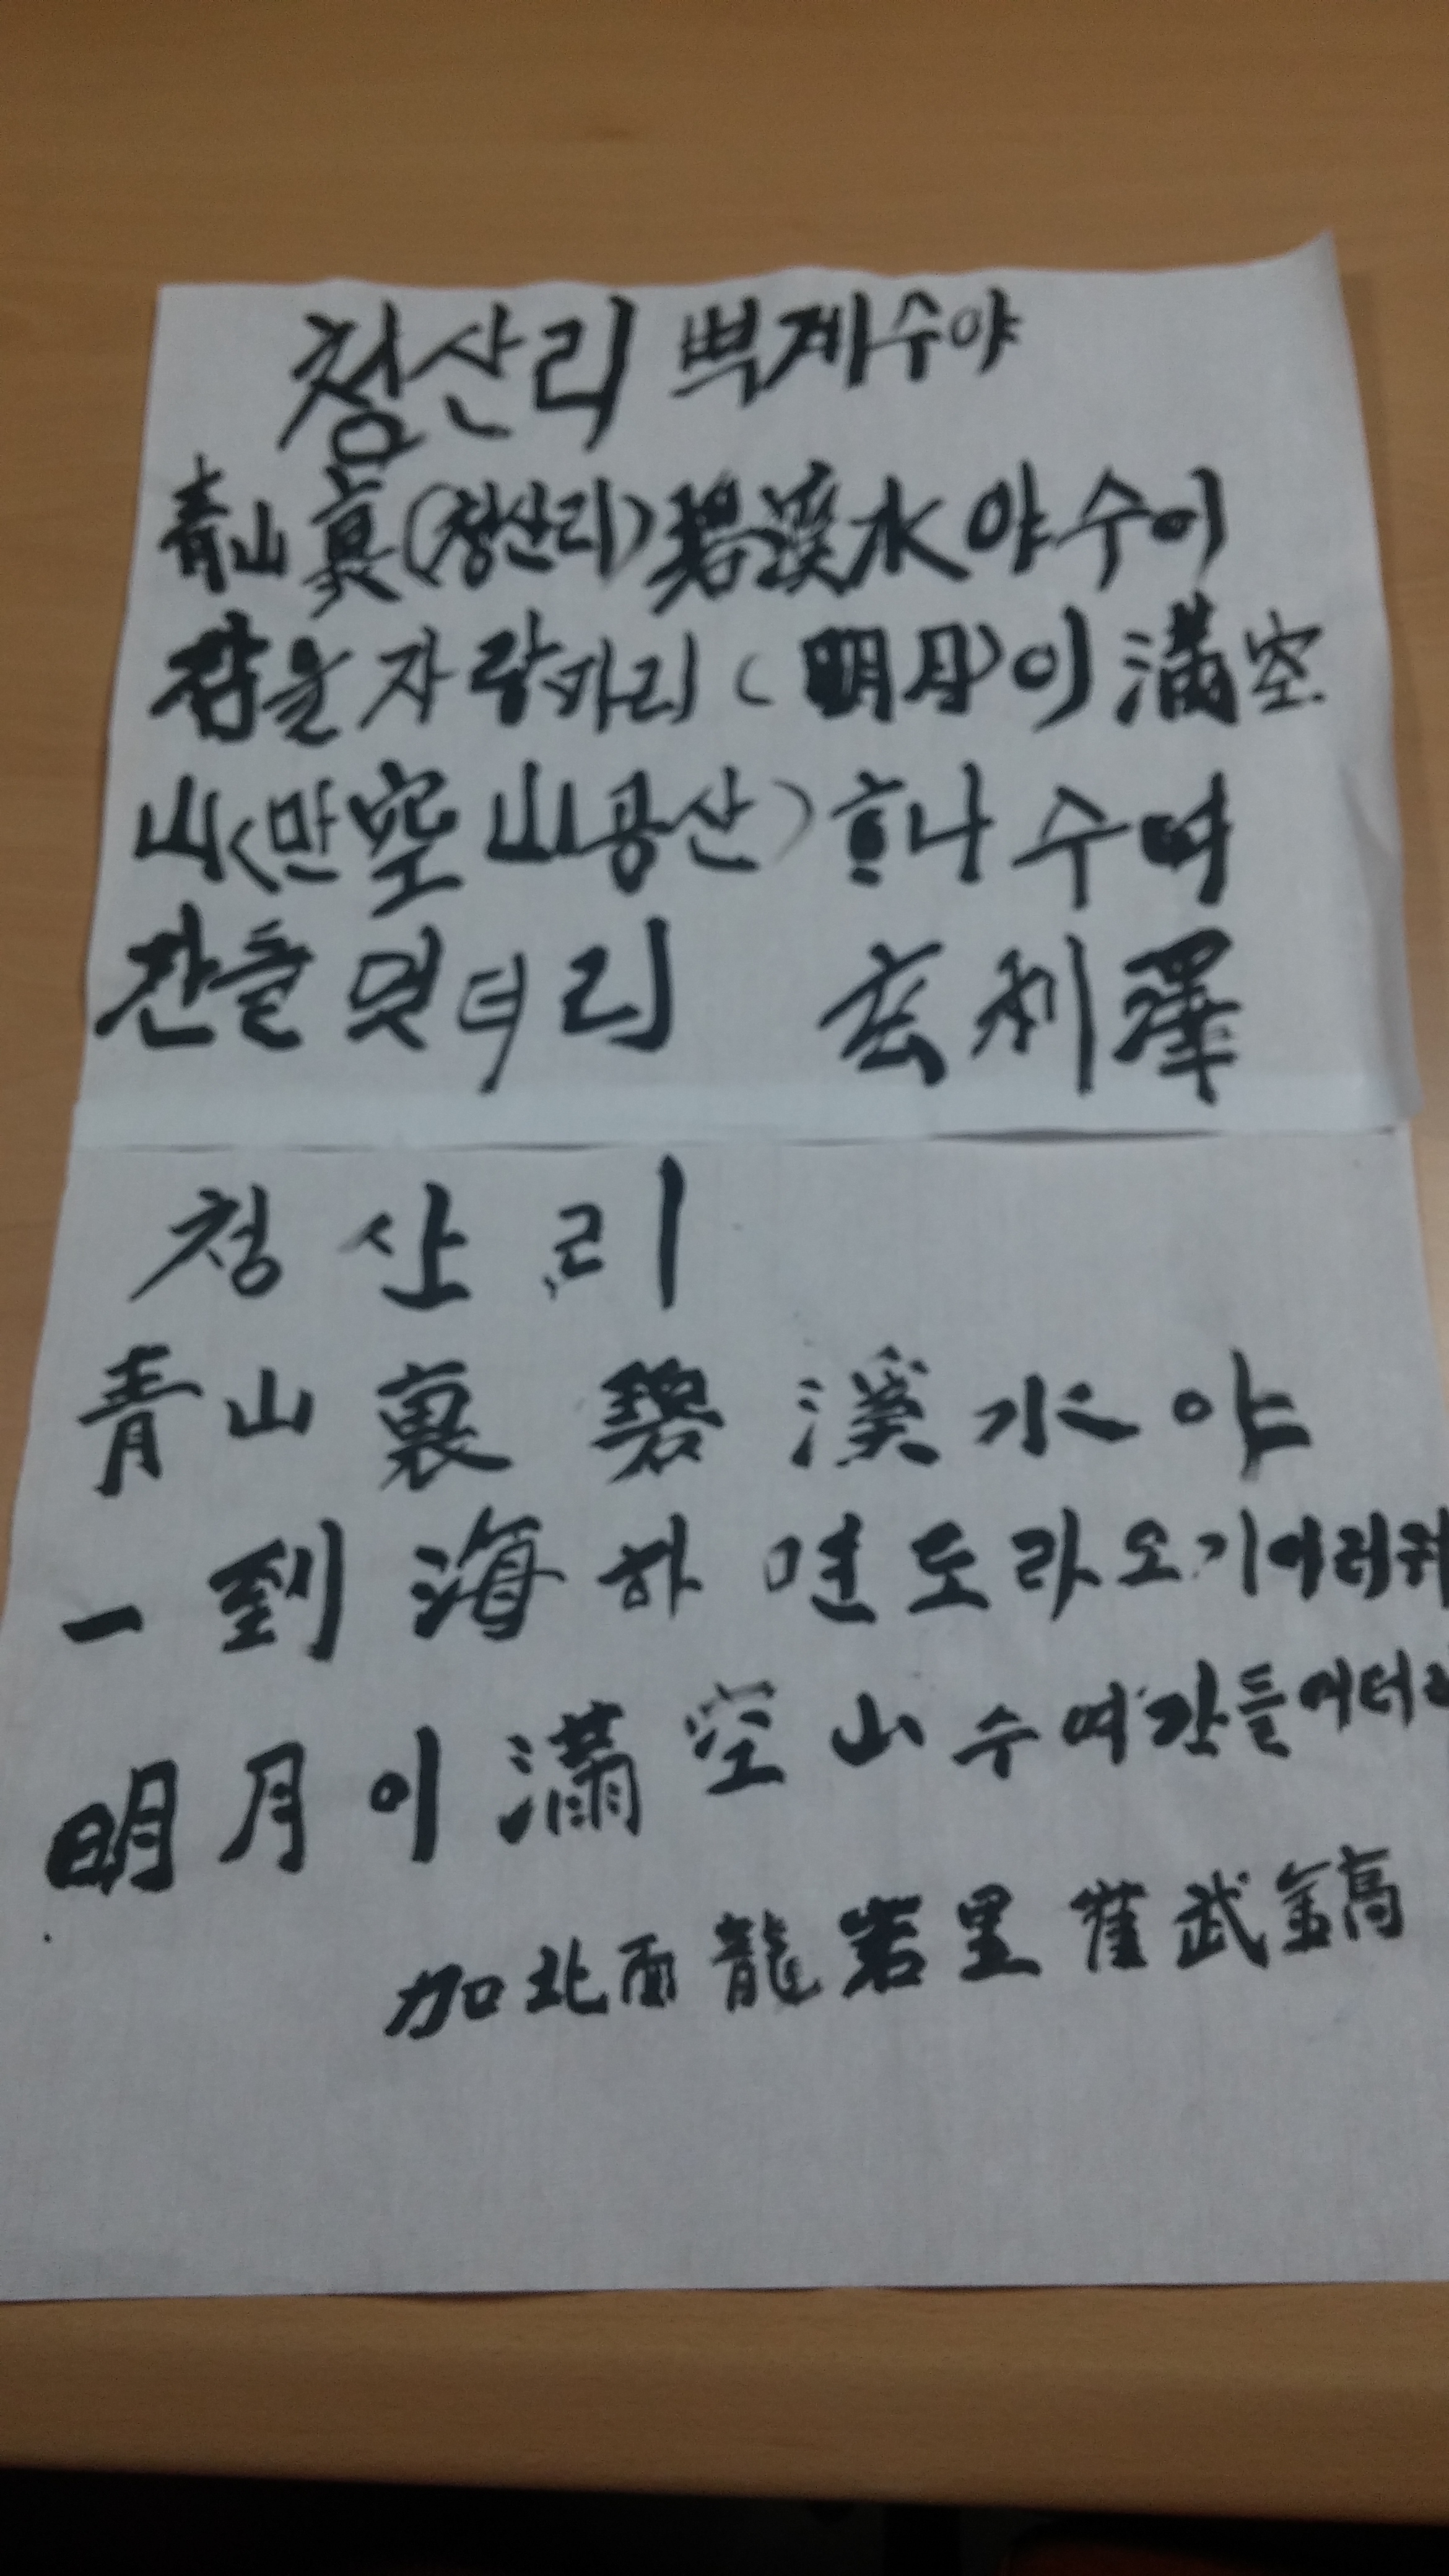 청산리 쁙계수야
靑山裏(청산리)碧溪水야 수이
감을 자랑카리(明月)이 滿空
山(만空山공산)흐나 수여
간들 엇더리 玄利澤
청산리
靑山裏碧溪水야
一到海하면도라오기어러워
明月이滿空山수여간들어더리
加北面龍岩里崔武鎬